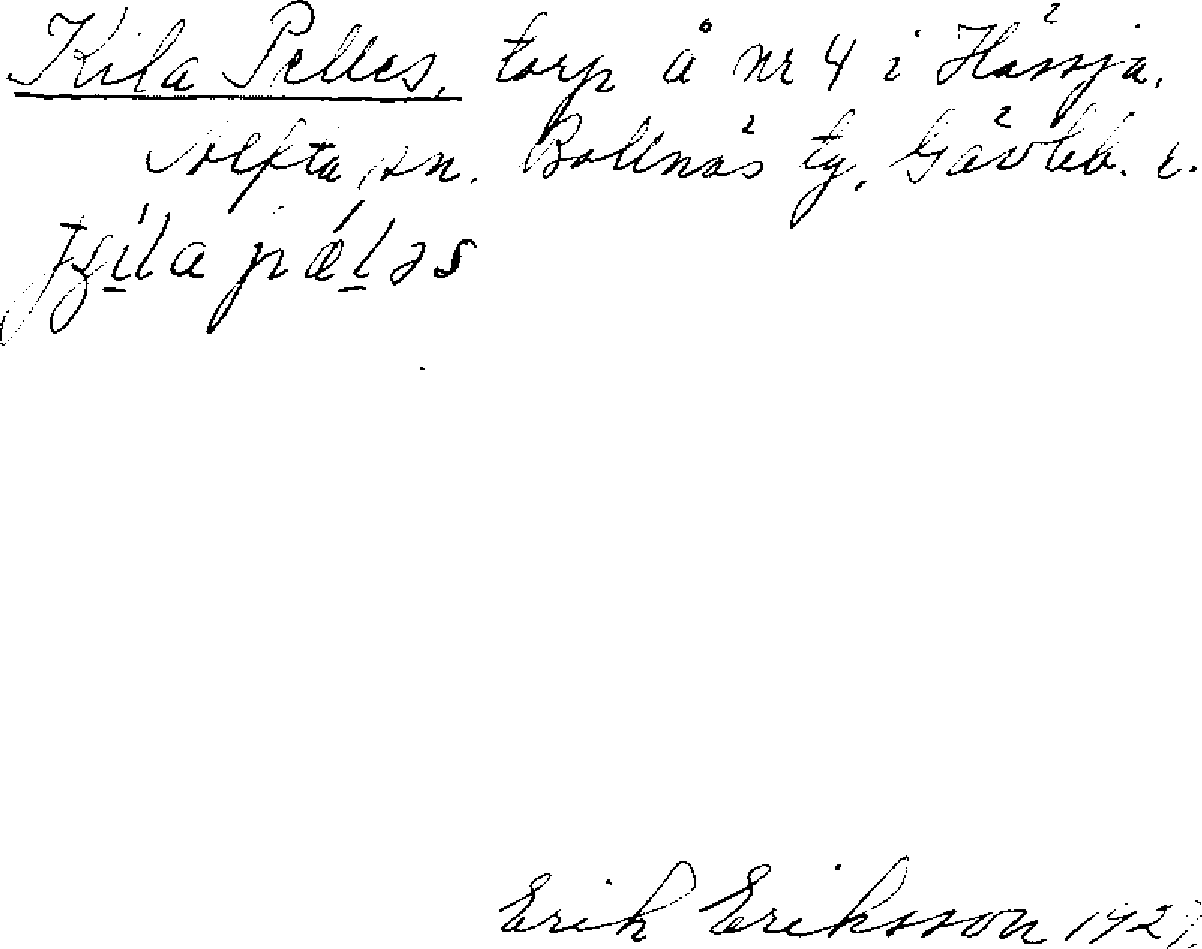 Kila Pelles, torp å nr 4 i Hässja.
Alfta sn. Bollnäs tg. Gävleb. l.
Erik Eriksson 1927